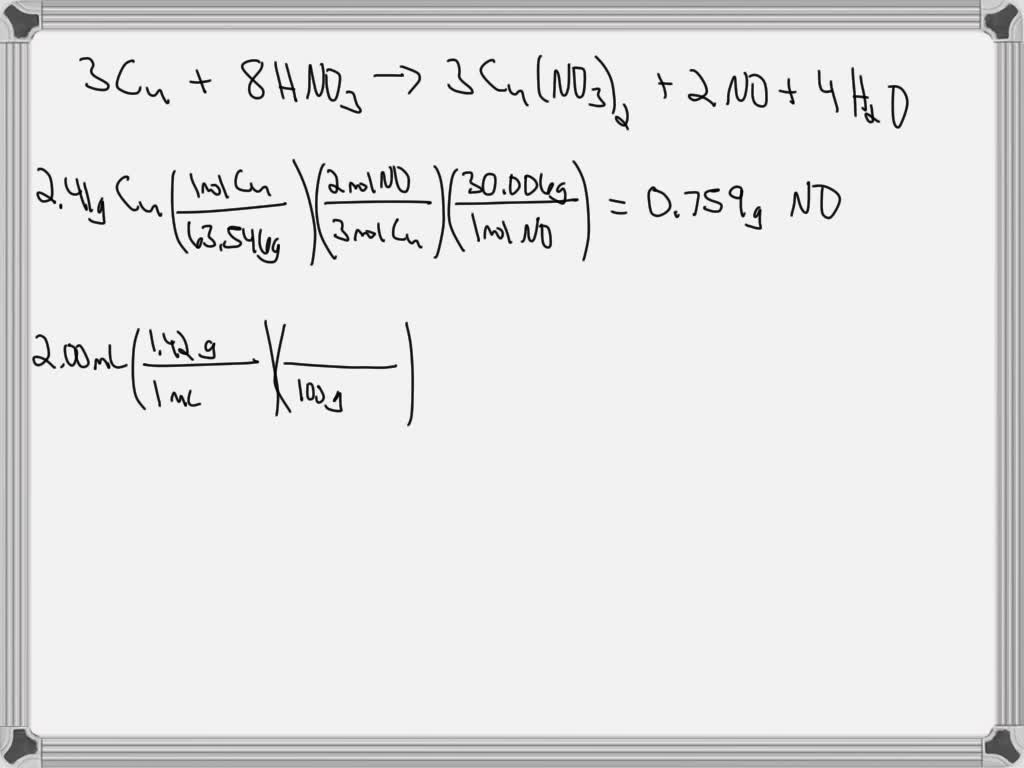 3Cu + 8HNO3 → 3Cu(NO3)2 + 2NO + 4H2O
2.41g Cu (1 mol Cu / 63.546g)(2 mol NO / 3 mol Cu)(30.006g / 1 mol NO) = 0.759g NO
2.00 mL (1.42 g / 1 mL)( / 100g)